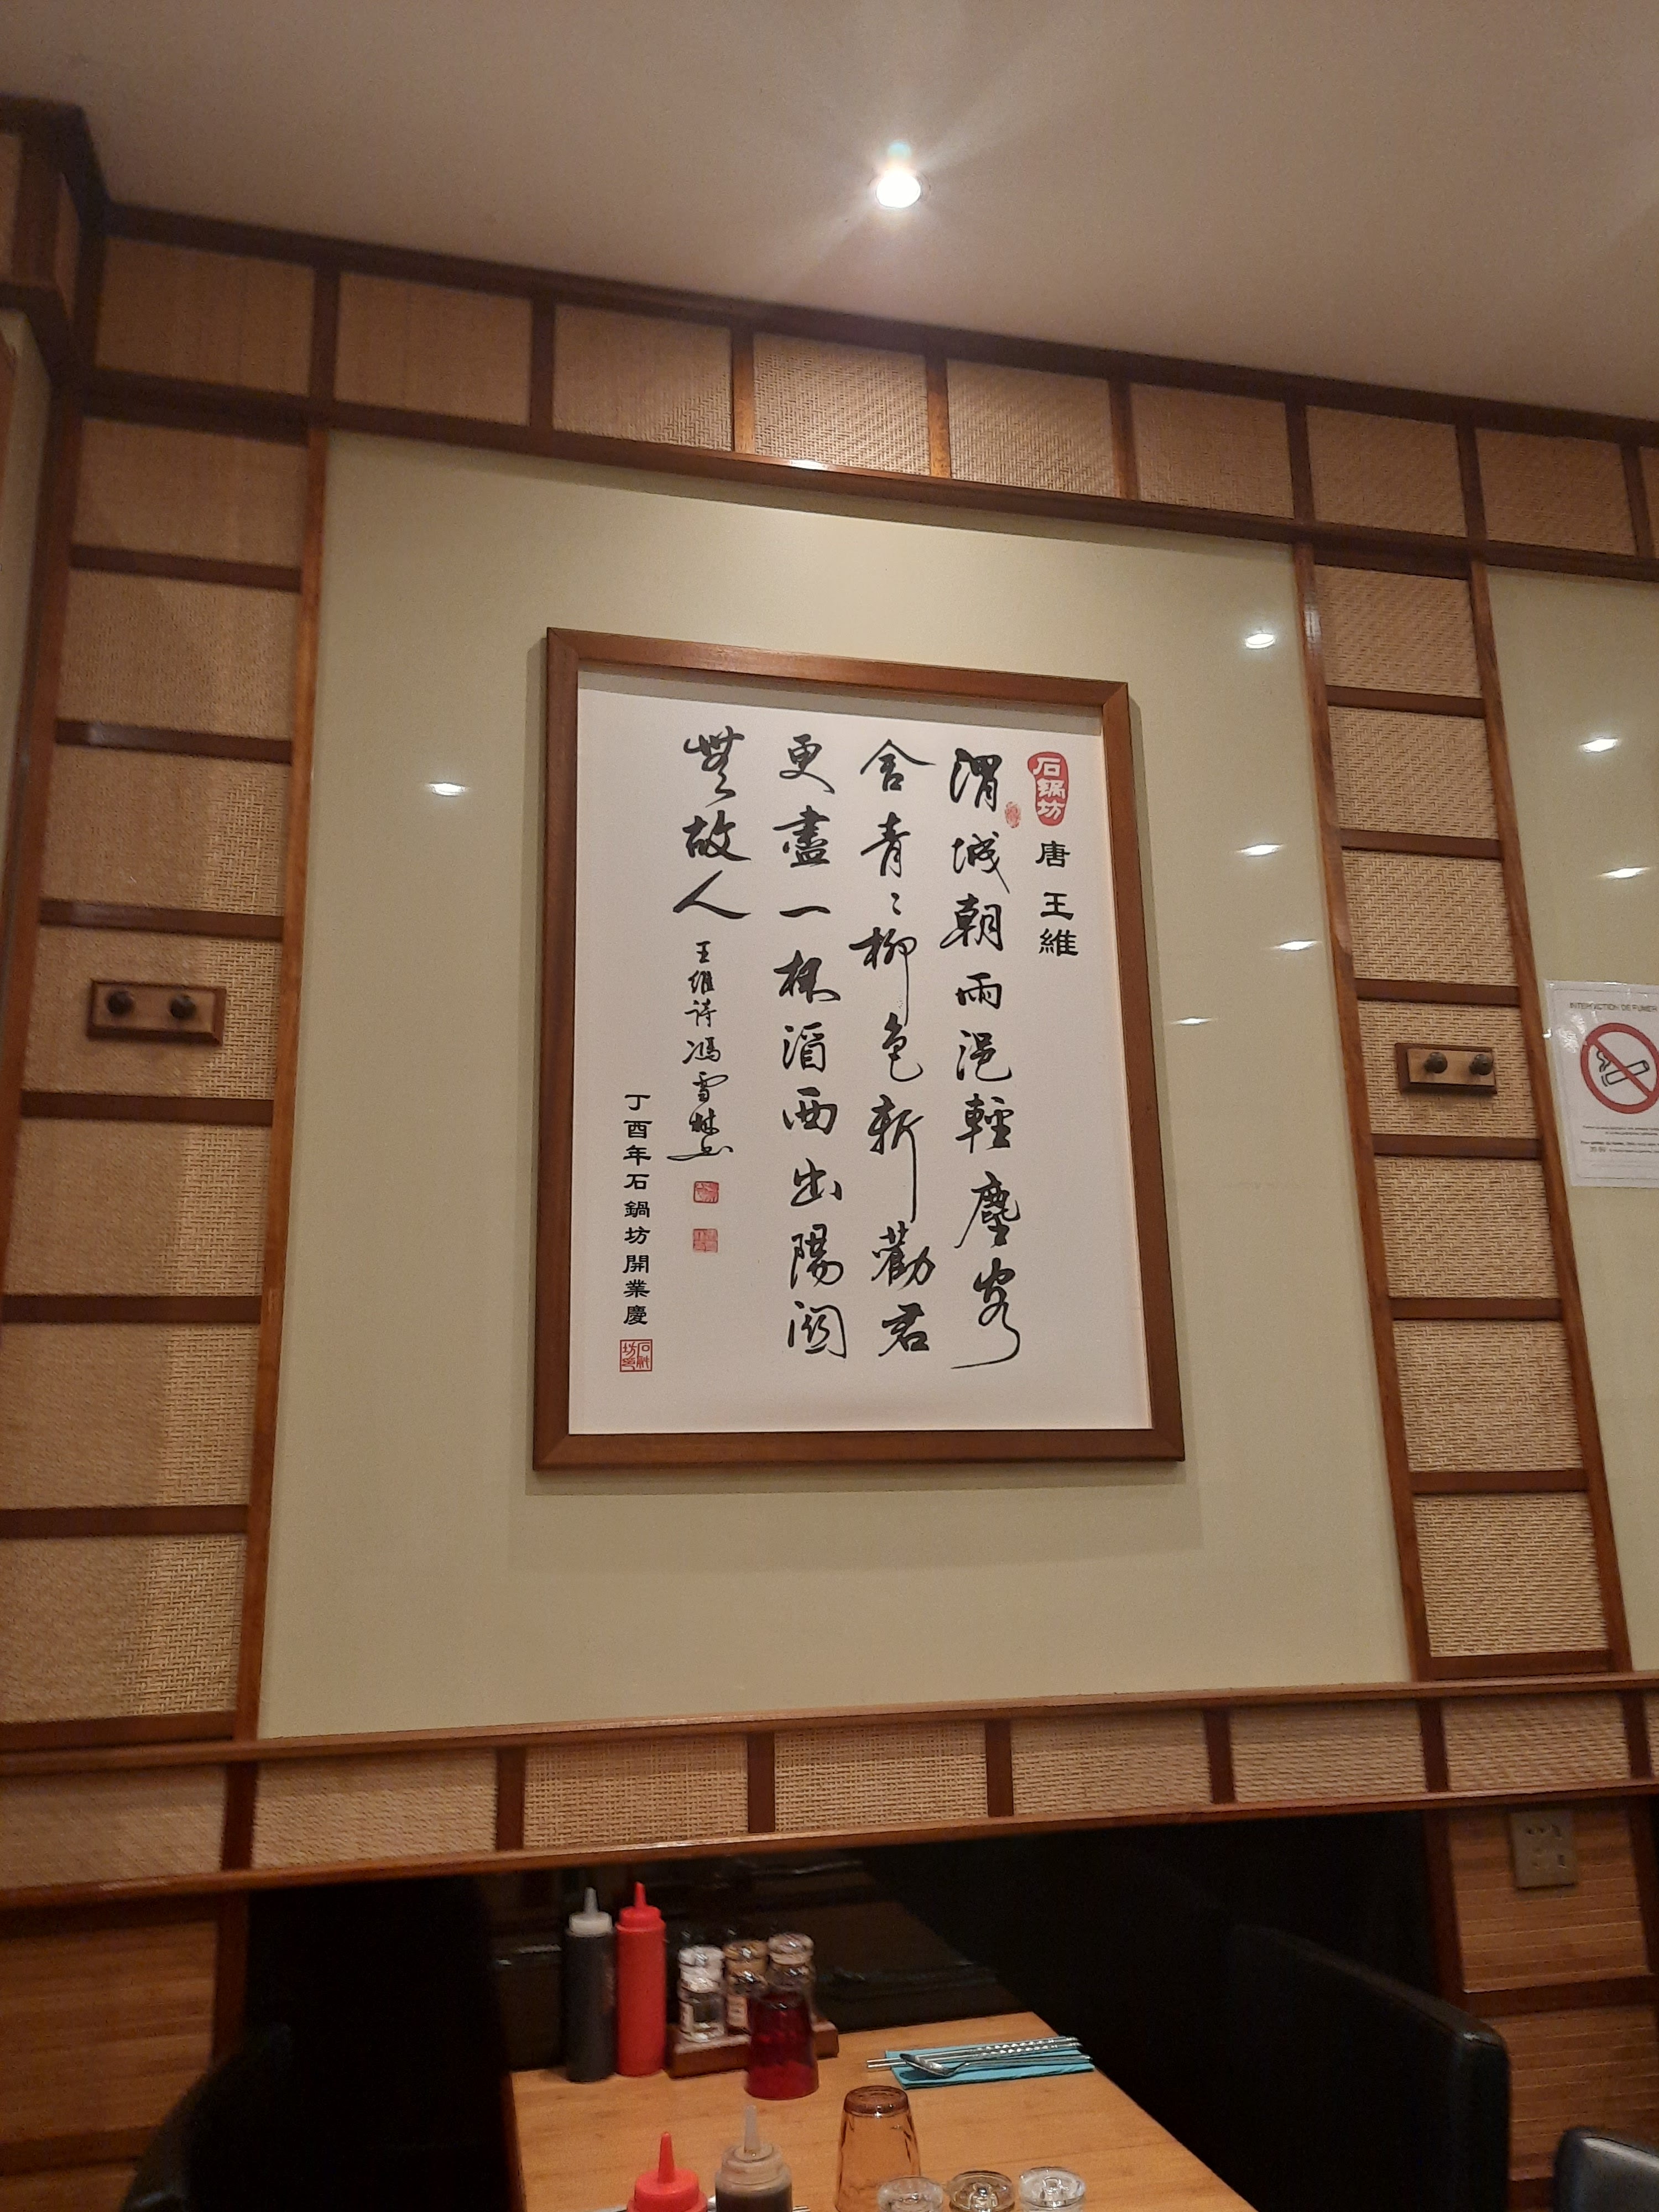 石锅坊
唐王維
渭城朝雨浥輕塵客
舍青〻柳色新勸君
更盡一杯酒西出陽關
無故人
王維詩馮雪林書
丁酉年石鍋坊開業慶
INTERDICTION DE FUMER